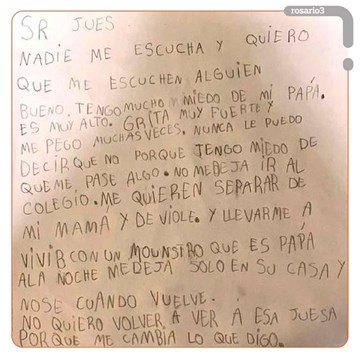 rosario3
SR JUES
NADIE ME ESCUCHA Y QUIERO
QUE ME ESCUCHEN ALGUIEN
BUENO. TENGO MUCHO MIEDO DE MI PAPÁ.
ES MUY ALTO. GRITA MUY FUERTE Y
ME PEGO MUCHAS VECES. NUNCA LE PUEDO
DECIR QUE NO PORQUE TENGO MIEDO DE
QUE ME PASE ALGO. NO ME DEJA IR AL
COLEGIO. ME QUIEREN SEPARAR DE
MI MAMÁ Y DE VIOLE. Y LLEVARME A
VIVIR CON UN MOUNSTRO QUE ES PAPÁ
ALA NOCHE ME DEJA SOLO EN SU CASA Y
NOSE CUANDO VUELVE.
NO QUIERO VOLVER A VER A ESA JUESA
PORQUE ME CAMBIA LO QUE DIGO.